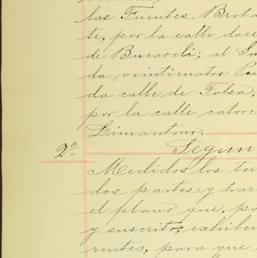 las Fuentes Brota
te, por la calle doce
de Bucareli; al S
da veinticuatro Pa
da calle de Tolsa,
por la calle catorc
Limantour.
Segun
2ª
Medidos los ter
dos partes y traz
el plano que, po
y suscrito, exhiben
rentes, para que